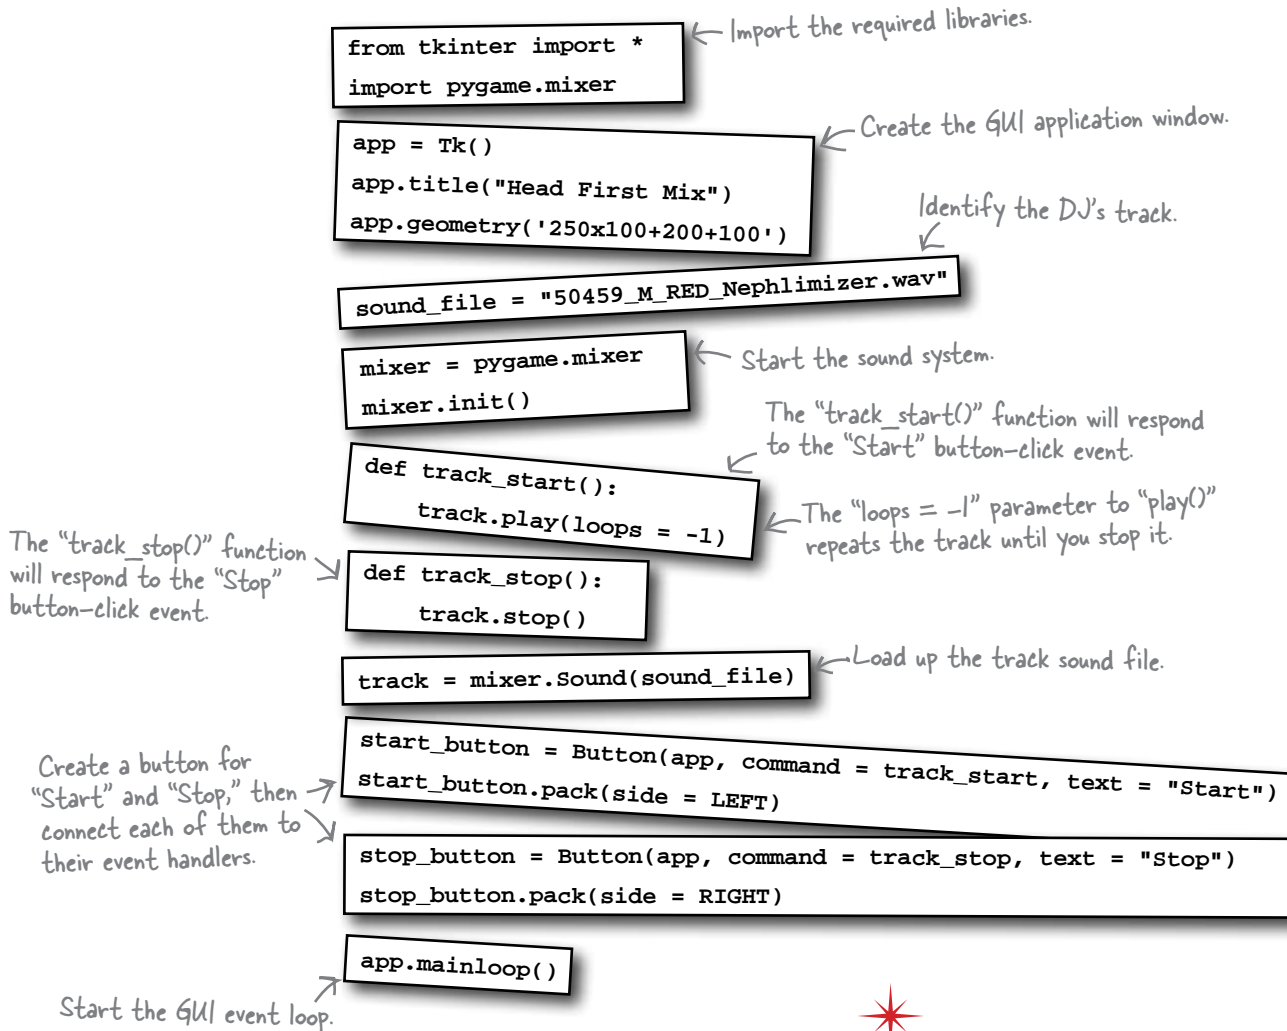 from tkinter import *
import pygame.mixer
Import the required libraries.
app = Tk()
app.title("Head First Mix")
app.geometry('250x100+200+100')
Create the GUI application window.
Identify the DJ's track.
sound_file = "50459_M_RED_Nephlimizer.wav"
mixer = pygame.mixer
mixer.init()
Start the sound system.
The "track_start()" function will respond
to the "Start" button-click event.
def track_start():
    track.play(loops = -1)
The "loops = -1" parameter to "play()"
repeats the track until you stop it.
The "track_stop()" function
will respond to the "Stop"
button-click event.
def track_stop():
    track.stop()
track = mixer.Sound(sound_file)
Load up the track sound file.
Create a button for
"Start" and "Stop," then
connect each of them to
their event handlers.
start_button = Button(app, command = track_start, text = "Start")
start_button.pack(side = LEFT)
stop_button = Button(app, command = track_stop, text = "Stop")
stop_button.pack(side = RIGHT)
app.mainloop()
Start the GUI event loop.